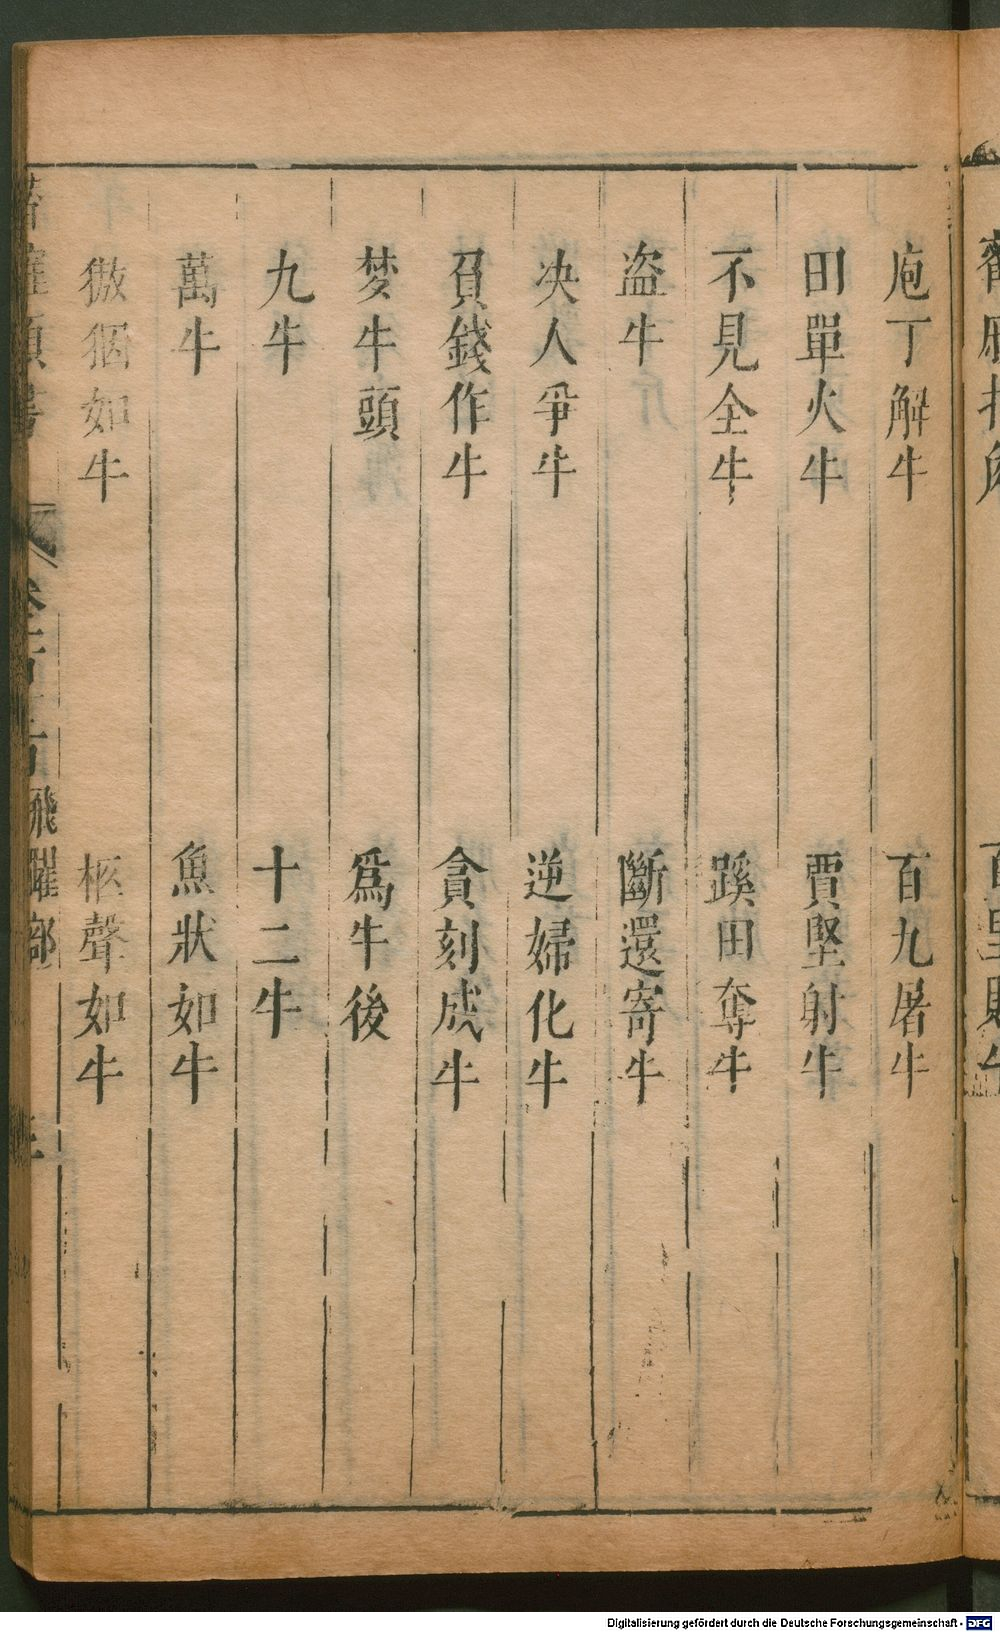 庖丁解牛
百九屠牛
田單火牛
賈堅射牛
不見全牛
蹊田奪牛
盗牛
斷還寄牛
决人爭牛
逆婦化牛
貟錢作牛
貪刻成牛
梦牛頭
爲牛後
九牛
十二牛
萬牛
魚狀如牛
如牛
柩聲如牛
飛躍部
Digitalisierung gefördert durch die Deutsche Forschungsgemeinschaft - DFG